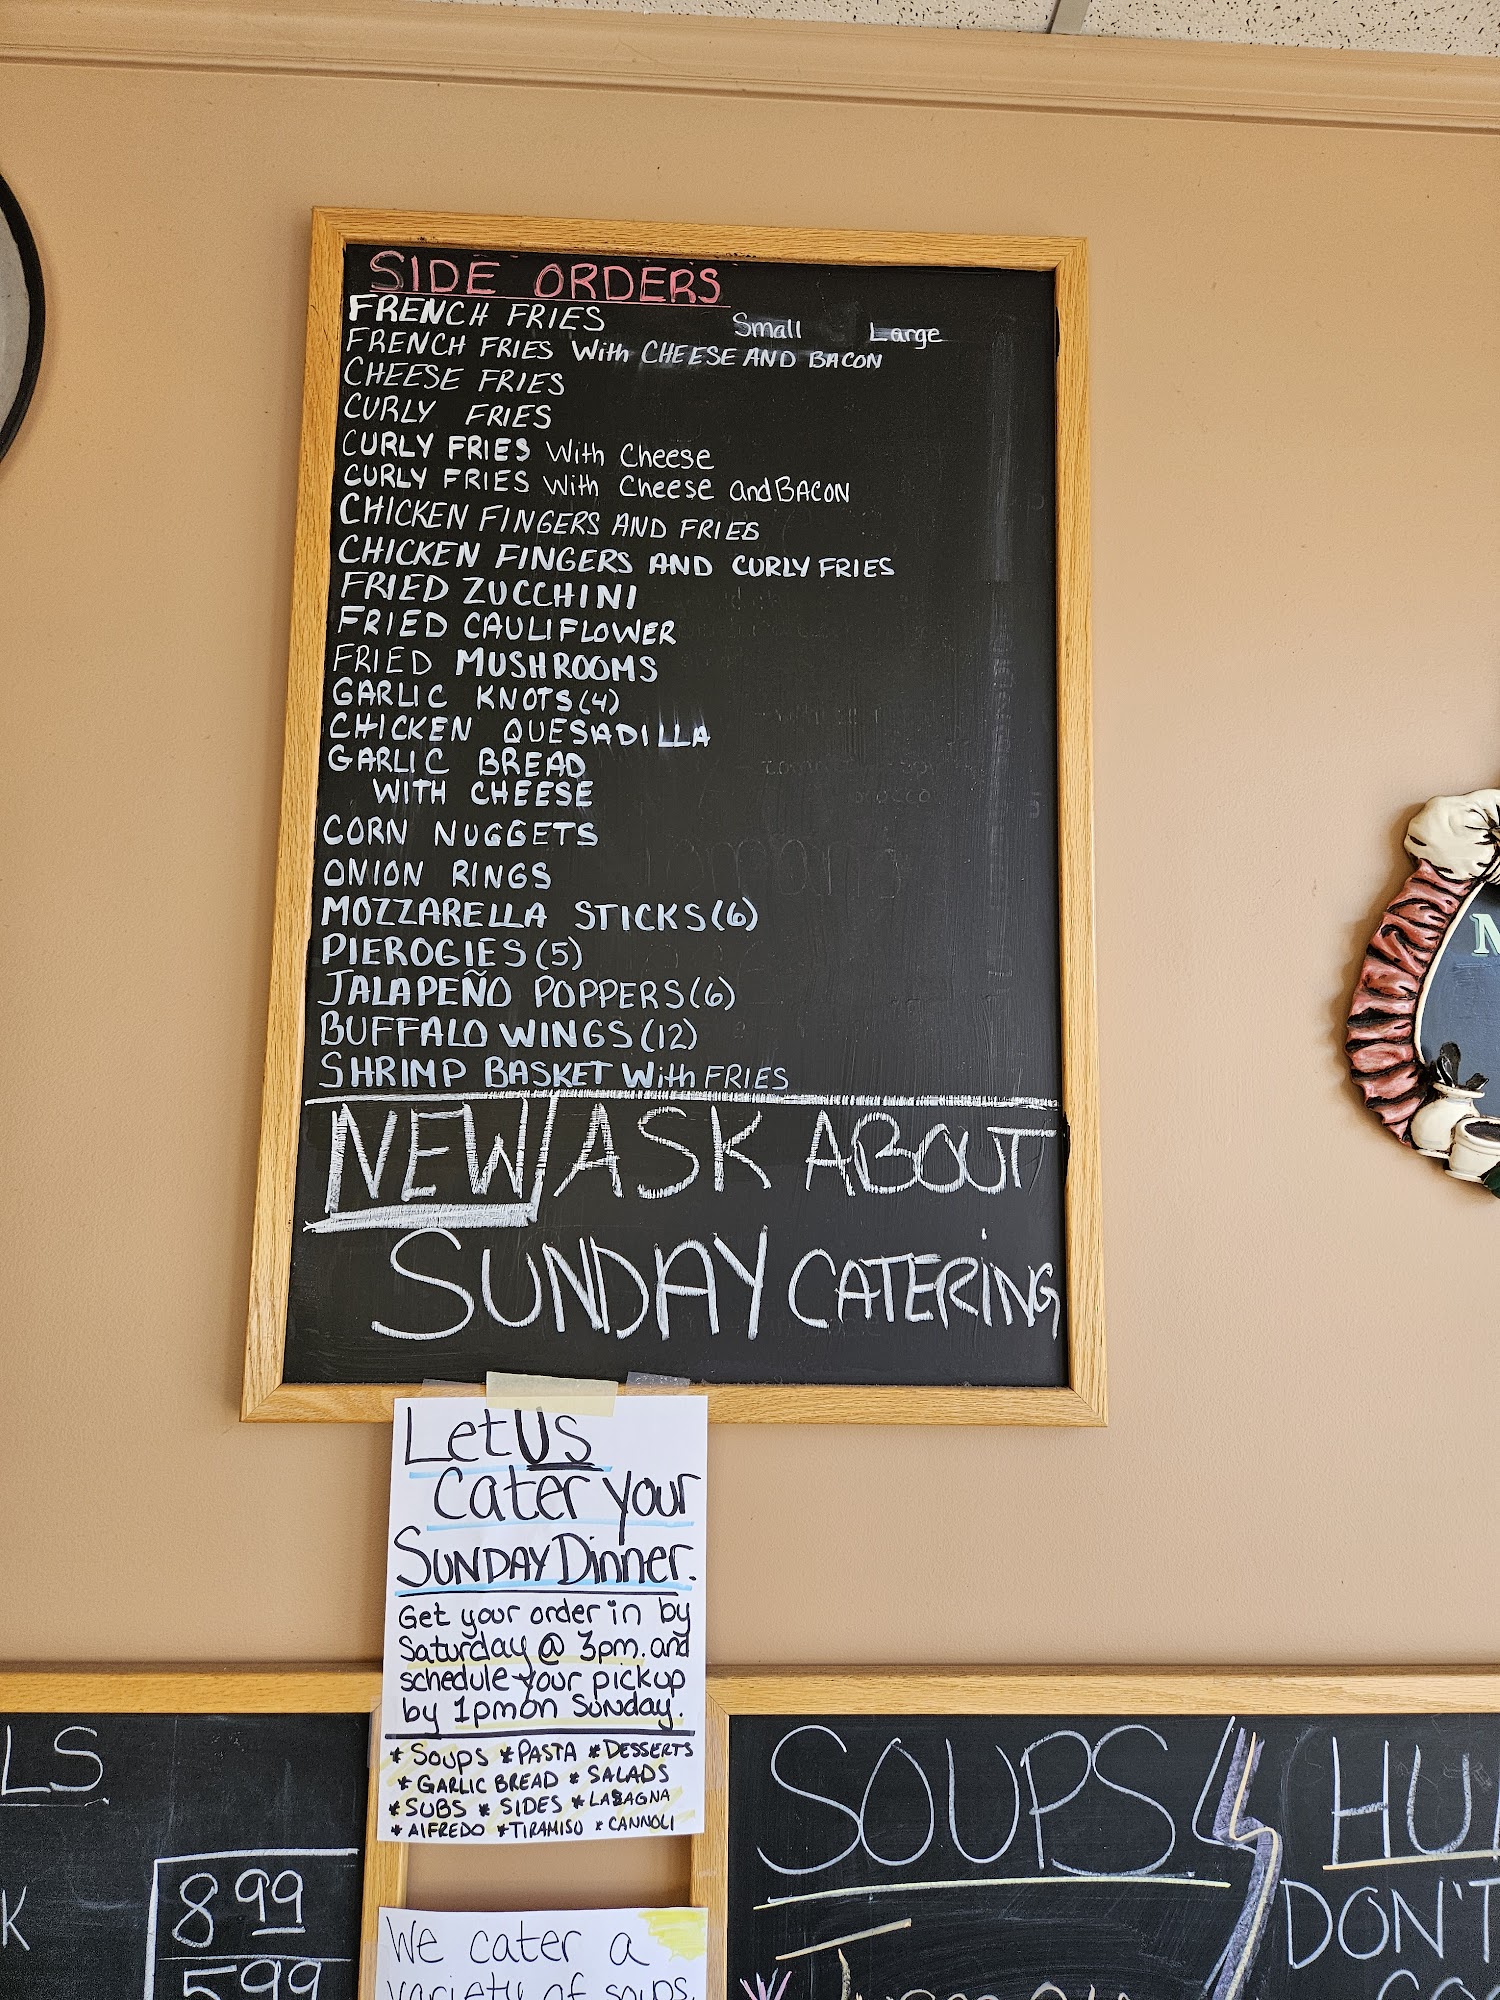 SIDE ORDERS
FRENCH FRIES Small Large
FRENCH FRIES With CHEESE AND BACON
CHEESE FRIES
CURLY FRIES
CURLY FRIES With Cheese
CURLY FRIES With Cheese and BACON
CHICKEN FINGERS AND FRIES
CHICKEN FINGERS AND CURLY FRIES
FRIED ZUCCHINI
FRIED CAULIFLOWER
FRIED MUSHROOMS
GARLIC KNOTS (4)
CHICKEN QUESADILLA
GARLIC BREAD
WITH CHEESE
CORN NUGGETS
ONION RINGS
MOZZARELLA STICKS (6)
PIEROGIES (5)
JALAPEÑO POPPERS (6)
BUFFALO WINGS (12)
SHRIMP BASKET With FRIES
NEW ASK ABOUT
SUNDAY CATERING
Let US
Cater your
SUNDAY Dinner.
Get your order in by
Saturday @ 3pm. and
schedule your pickup
by 1pm on Sunday.
* Soups * PASTA * DESSERTS
* GARLIC BREAD * SALADS
* SUBS * SIDES * LASAGNA
* AlFREDO * TIRAMISU * CANNOLI
We cater a
variety of soups.
LS
K
8 99
5 99
SOUPS
HU
DON'T